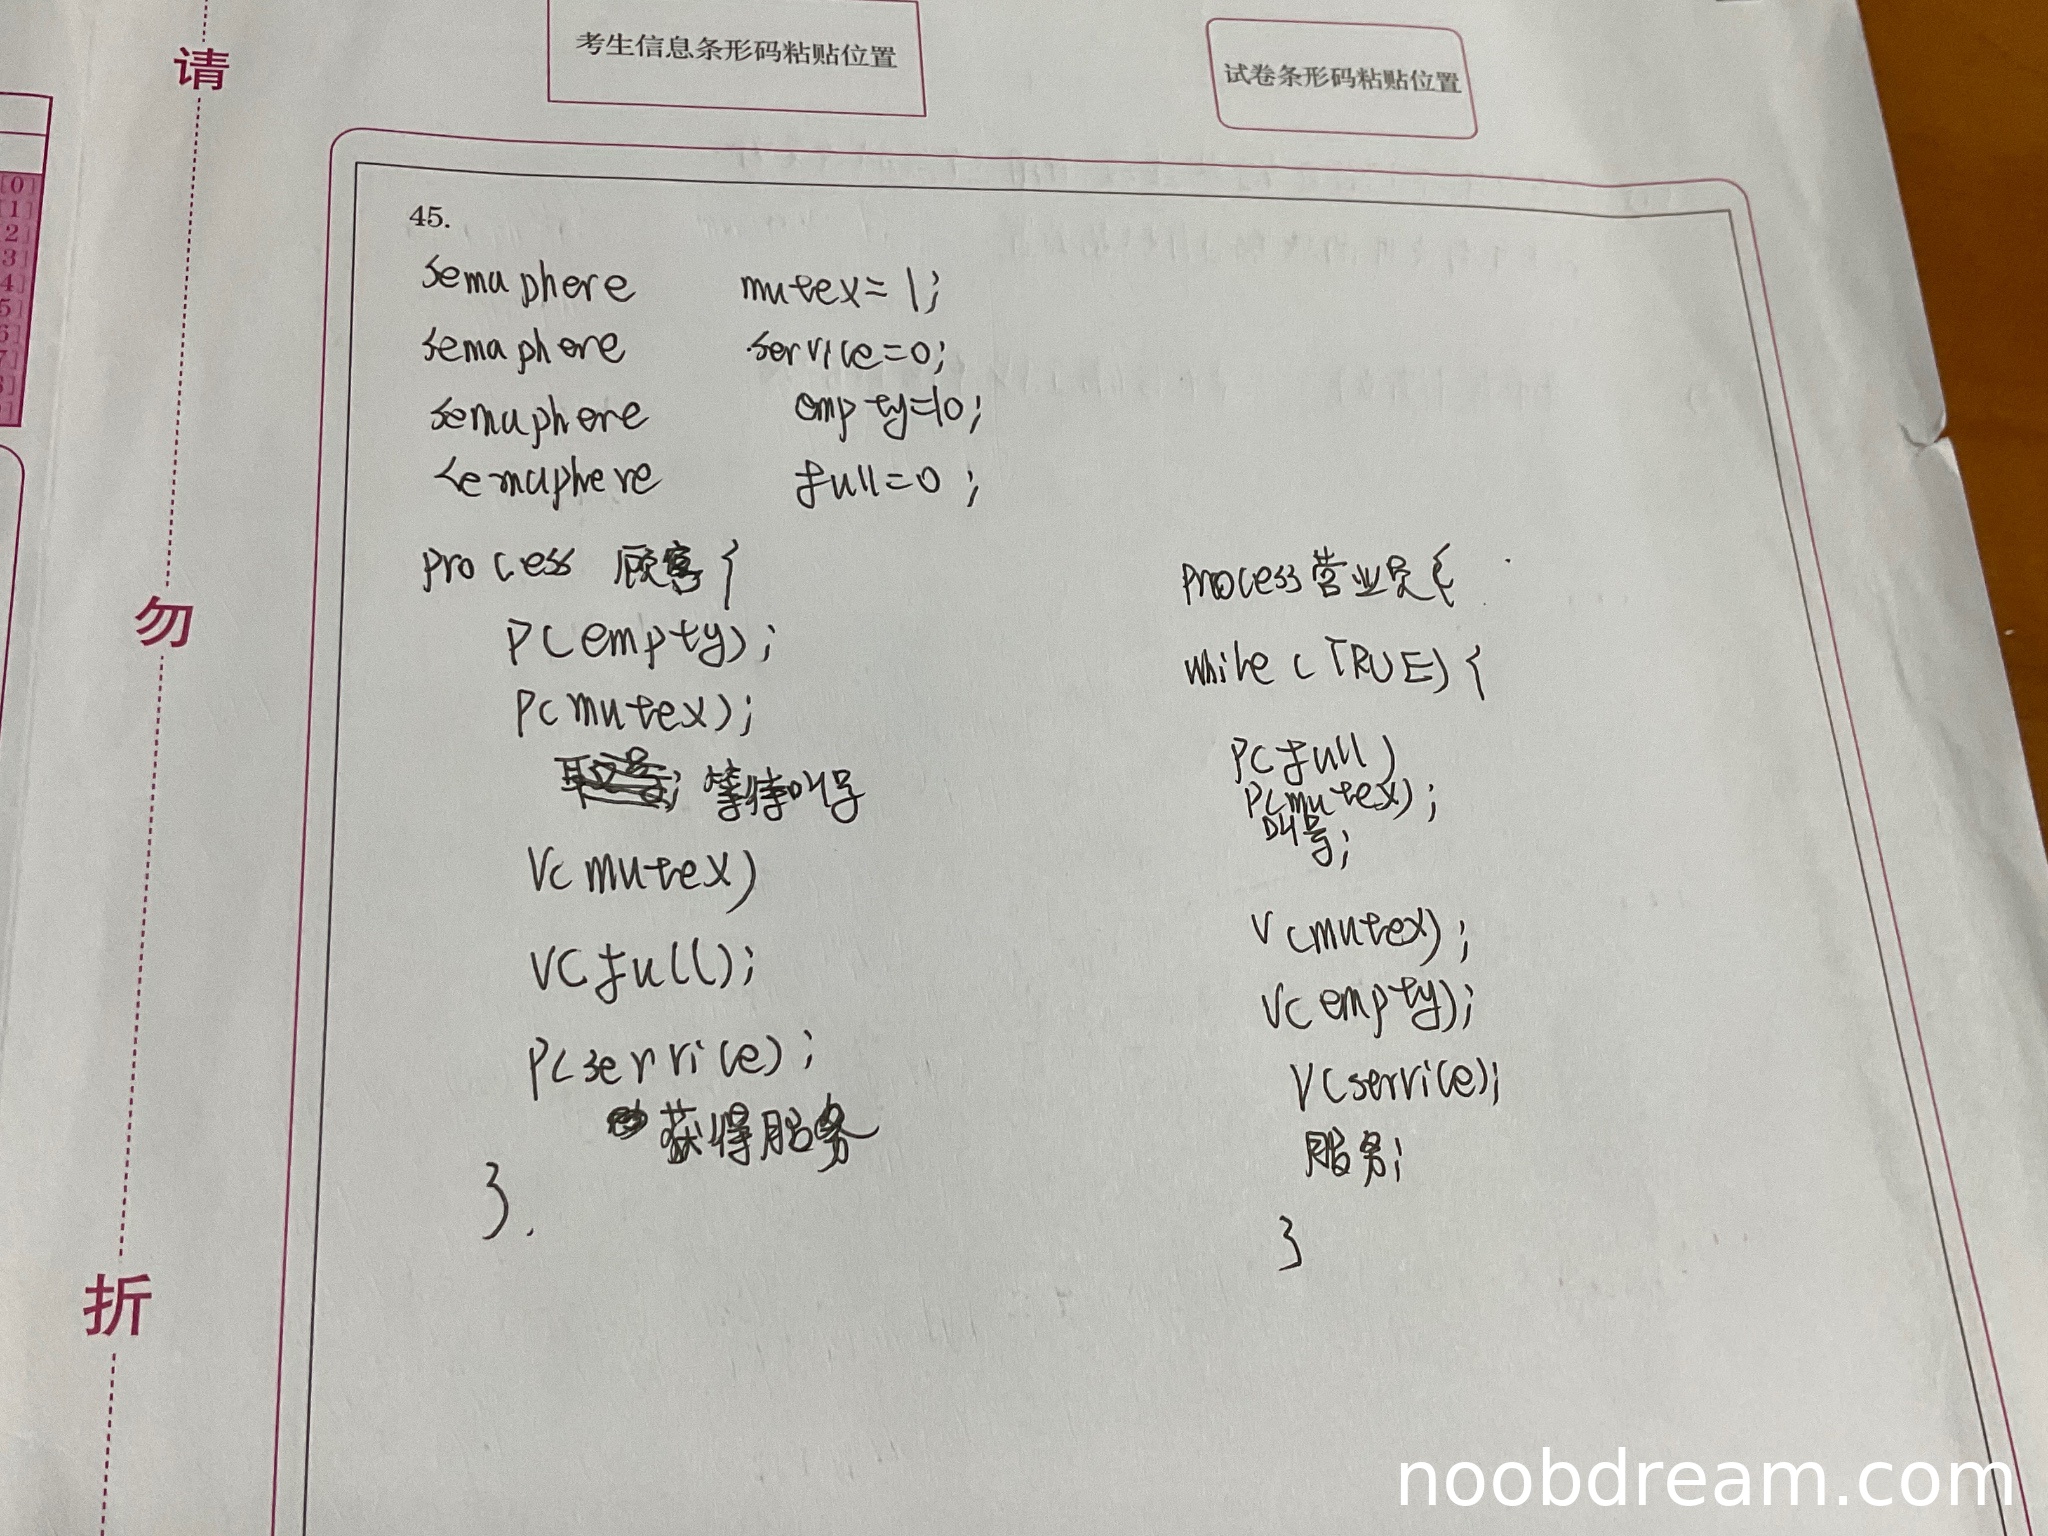 考生信息条形码粘贴位置
试卷条形码粘贴位置
请
勿
折
[0]
[1]
45.
semaphere mutex=1;
semaphore service=0;
semaphore empty=10;
semaphere full=0;
process 顾客{
P(empty);
P(mutex);
等待叫号
V(mutex)
V(full);
P(service);
获得服务
}.
process 营业员{
while (TRUE) {
P(full)
P(mutex);
叫号;
V(mutex);
V(empty);
V(service);
服务;
}
noobdream.com